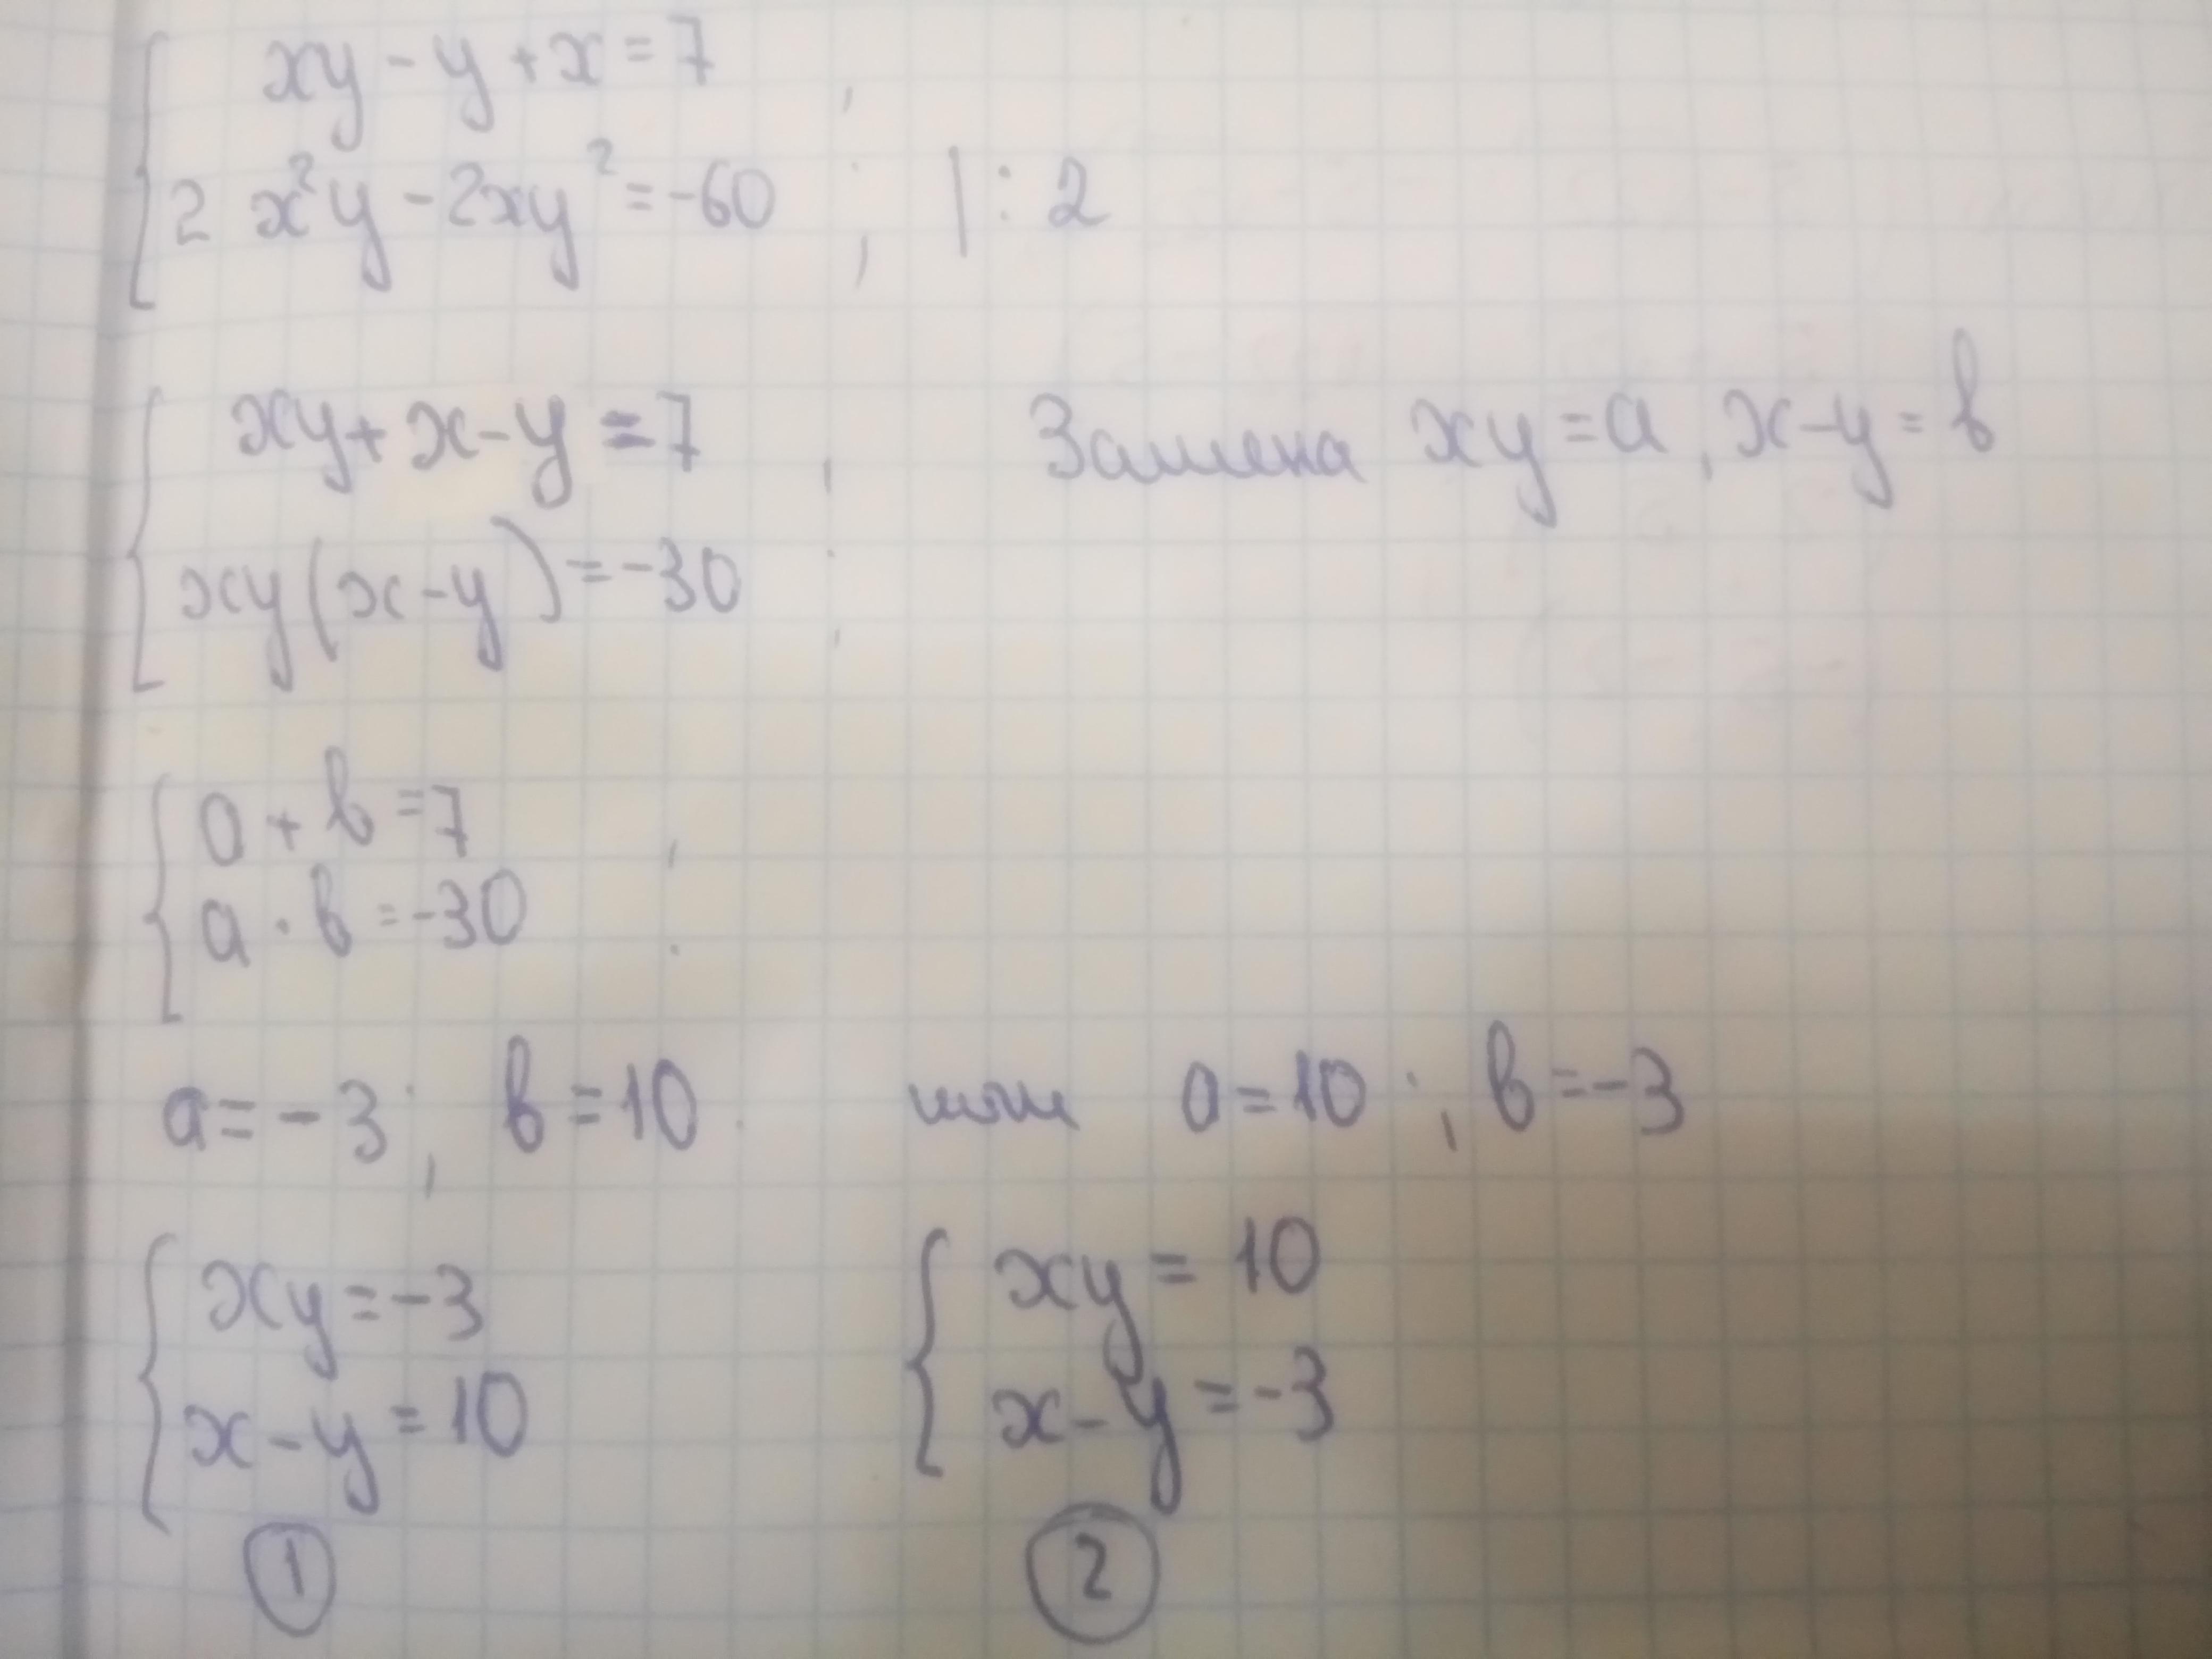 xy - y + x = 7 ,
2 x²y - 2xy² = -60 ; | : 2
xy + x - y = 7 , Замена xy = a , x - y = b
xy(x - y) = -30 ;
a + b = 7 ,
a · b = -30 .
a = -3 ; b = 10 . или a = 10 ; b = -3
xy = -3 xy = 10
x - y = 10 x - y = -3
1 2